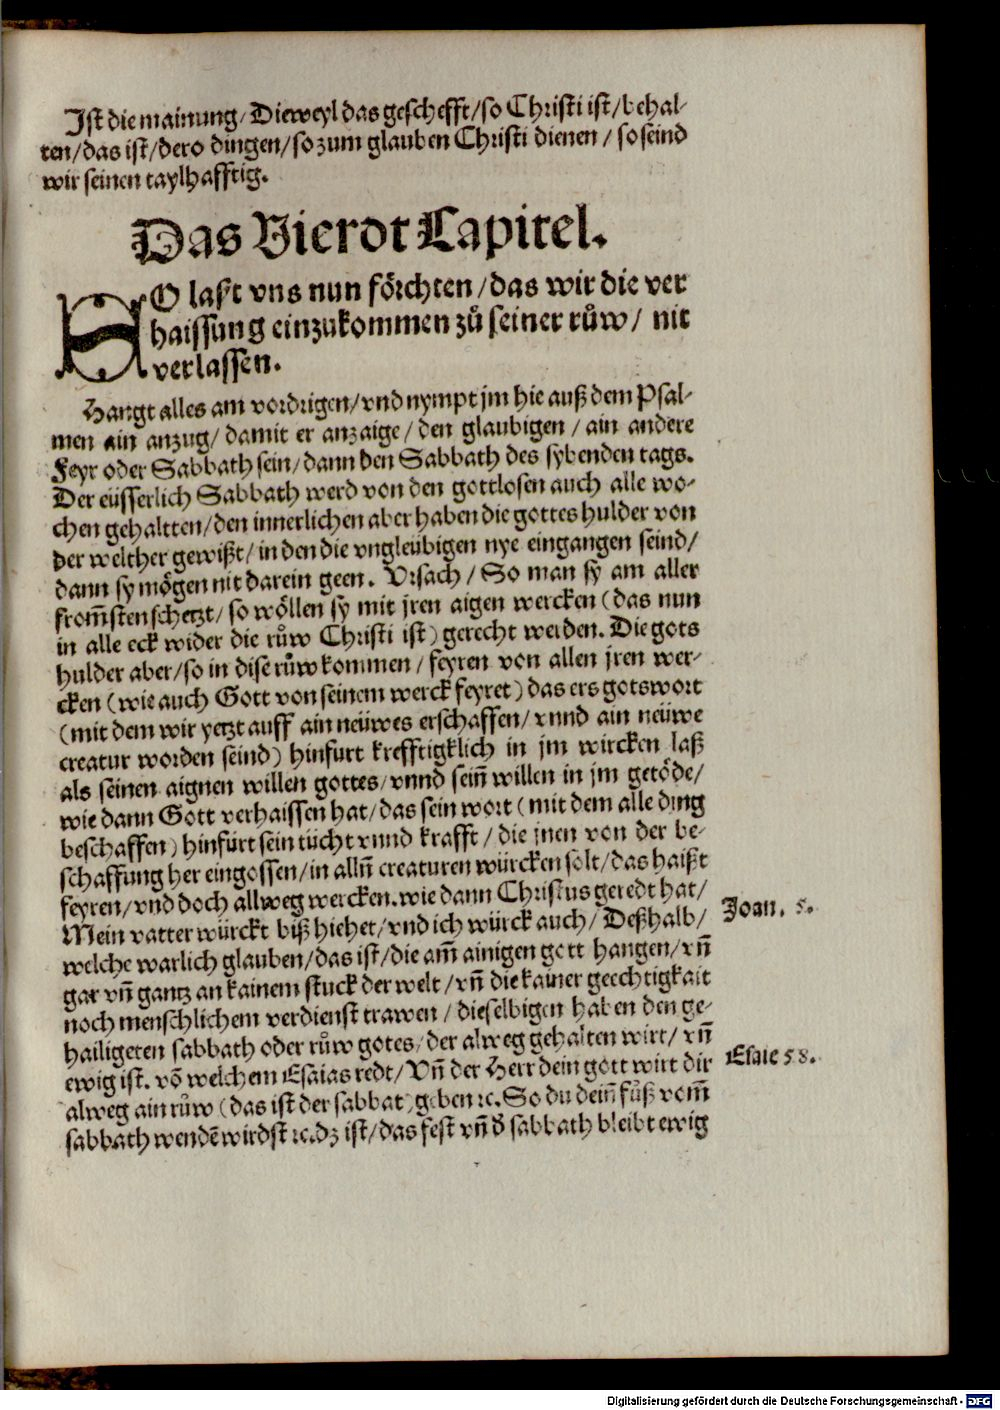 Ist die mainung/ Dieweyl das geschefft/ so Christi ist/ behal-
ten/ das ist/ dero dingen/ so zum glauben Christi dienen/ so seind
wir seinen taylhafftig.
Das Vierdt Capitel.
SO laßt vns nun förchten/ das wir die ver
haissung einzukommen zů seiner růw/ nit
verlassen.
Hangt alles am vordrigen/ vnd nympt jm hie auß dem Psal-
men ain anzug/ damit er anzaige/ den glaubigen/ ain andere
Feyr oder Sabbath sein/ dann den Sabbath des sybenden tags.
Der eüsserlich Sabbath werd von den gottlosen auch alle wo-
chen gehaltten/ den innerlichen aber haben die gottes hulder von
der welt her gewißt/ in den die vngleubigen nye eingangen seind/
dann sy mögen nit darein geen. Vrsach/ So man sy am aller
from̃sten schetzt/ so wöllen sy mit jren aigen wercken (das nun
in alle eck wider die růw Christi ist) gerecht werden. Die gots
hulder aber/ so in dise růw kommen/ feyren von allen jren wer-
cken (wie auch Gott von seinem werck feyret) das ers gotswort
(mit dem wir yetzt auff ain neüwes erschaffen/ vnnd ain neüwe
creatur worden seind) hinfurt krefftigklich in jm wircken laß
als seinen aignen willen gottes/ vnnd sein̄ willen in jm getöde/
wie dann Gott verhaissen hat/ das sein wort (mit dem alle ding
beschaffen) hinfürt sein tücht vnnd krafft/ die jnen von der be-
schaffung her eingossen/ in alln̄ creaturen würcken solt/ das haißt
feyren/ vnd doch allweg wercken. wie dann Christus geredt hat/
Mein vatter würckt biß hiehet/ vnd ich würck auch/ Deßhalb/
Joan. 5.
welche warlich glauben/ das ist/ die am̃ ainigen gott hangen/ vn̄
gar vn̄ gantz an kainem stuck der welt/ vn̄ die kainer geechtigkait
noch menschlichem verdienst trawen/ dieselbigen haben den ge-
hailigeten sabbath oder růw gotes/ der alweg gehalten wirt/ vn̄
ewig ist. võ welchem Esaias redt/ Vn̄ der Herr dein gott wirt dir
Esaie 58.
alweg ain růw (das ist der sabbat) geben ꝛc. So du dein̄ fůß vom̃
sabbath wendẽ wirdst ꝛc. dz ist/ das fest vn̄ d' sabbath bleibt ewig
Digitalisierung gefördert durch die Deutsche Forschungsgemeinschaft - DFG